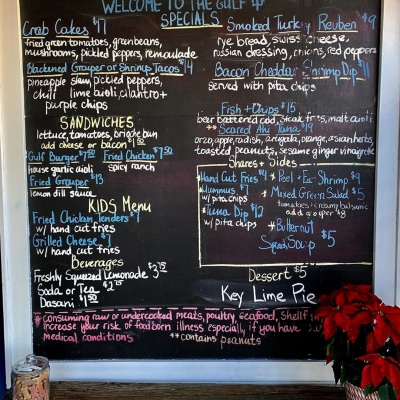 WELCOME TO THE GULF
SPECIALS
Crab Cakes $17
fried green tomatoes, green beans,
mushrooms, pickled peppers, remoulade
Blackened Grouper or Shrimp Tacos $14
pineapple slaw, pickled peppers,
chili lime aioli, cilantro +
purple chips
SANDWICHES
lettuce, tomatoes, brioche bun
add cheese or bacon $1 50
Gulf Burger $7 50
house garlic aioli
Fried Chicken $7 50
spicy ranch
Fried Grouper $13
lemon dill sauce
KIDS Menu
Fried Chicken Tenders $7
w/ hand cut fries
Grilled Cheese $7
w/ hand cut fries
Beverages
Freshly Squeezed Lemonade $3.75
Soda or Tea $2.75
Dasani $1 50
Smoked Turkey Reuben $9
rye bread, swiss cheese,
russian dressing, onions, red peppers
Bacon Cheddar Shrimp Dip $11
served with pita chips
Fish + Chips $15
beer battered cod, steak fries, malt aioli
** Seared Ahi Tuna $19
orzo, apple radish, arugula, orange, asian herbs,
toasted peanuts, sesame ginger vinaigrette
Shares + Sides
Hand Cut Fries $4
Hummus $7
w/ pita chips
*Tuna Dip $12
w/ pita chips
* Peel + Eat Shrimp $9
* Mixed Green Salad $5
tomatoes, creamy balsamic
add grouper $8
* Butternut
Squash Soup $5
Dessert $5
Key Lime Pie
* consuming raw or undercooked meats, poultry, seafood, shellfish
increase your risk of foodborn illness especially if you have
medical conditions
** contains peanuts